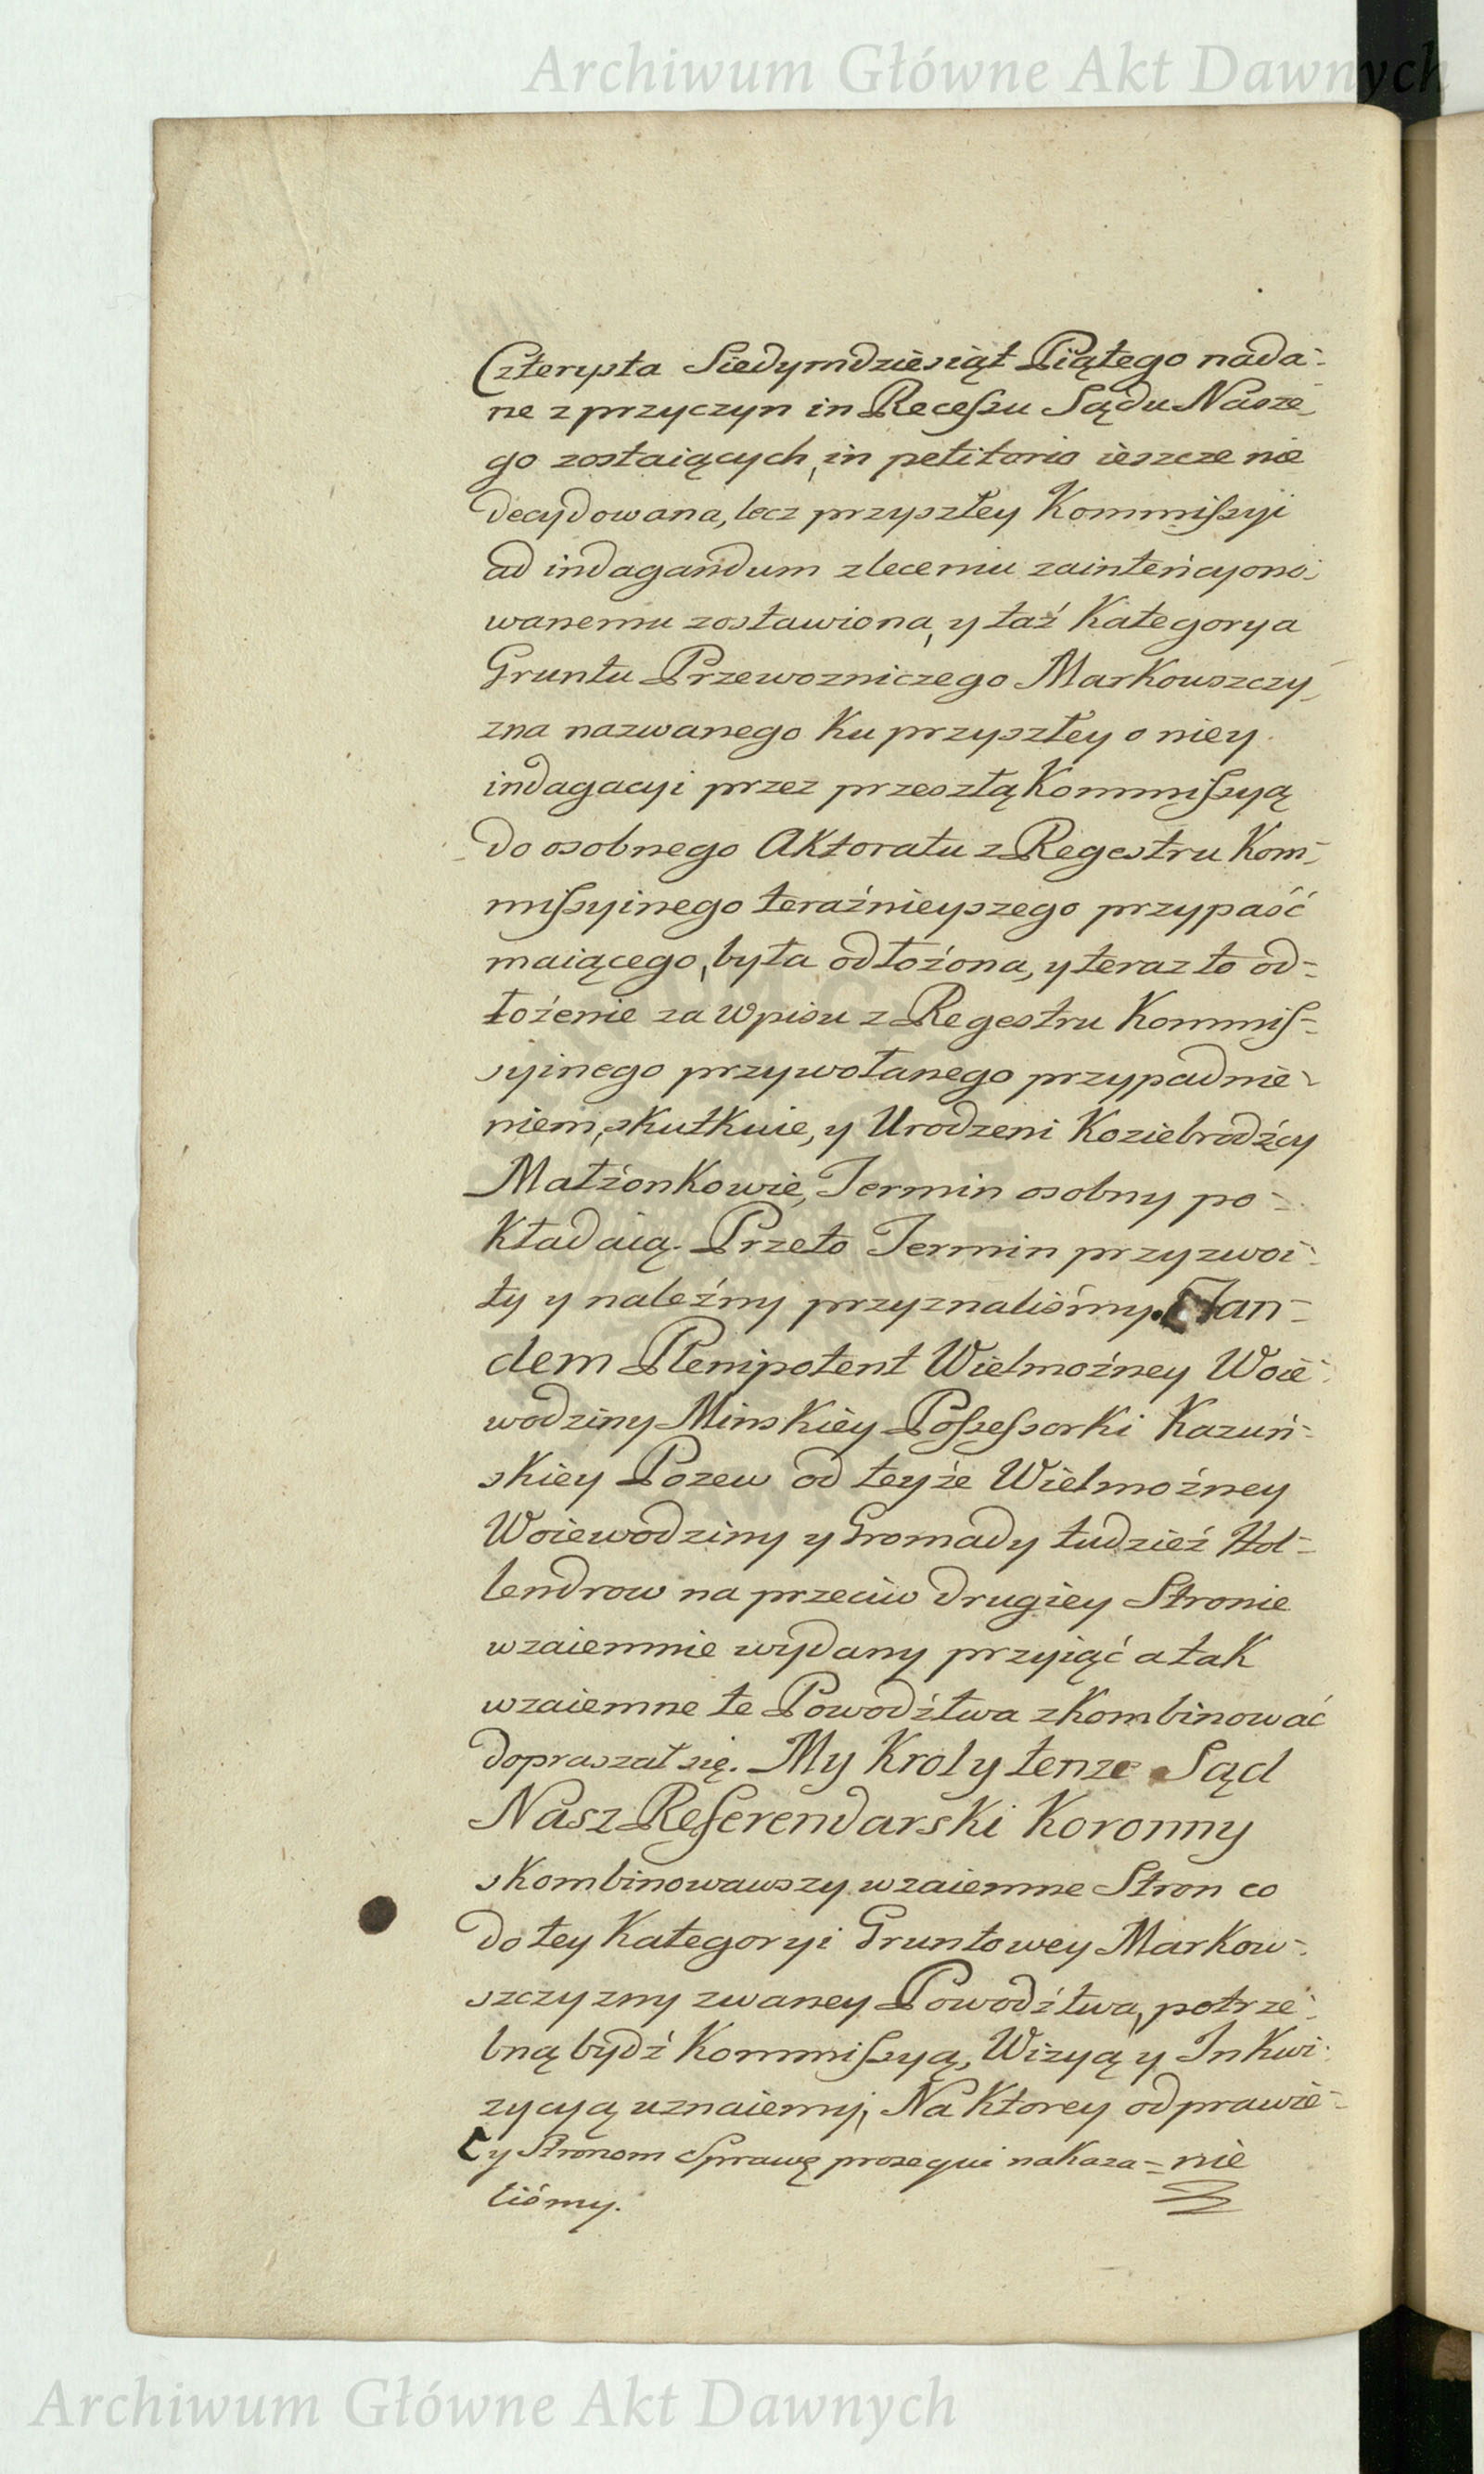 Archiwum Główne Akt Dawnych
Czterysta Siedymdziesiąt Piątego nada-
ne z przyczyn in Recessu Sądu Nasze-
go zostaiących, in petitorio ieszcze nie
decydowana, lecz przyszłey Kommissyi
ad indagandum zleceniu zainteńcyono-
wanemu zostawiona, y taż Kategorya
Gruntu Przewozniczego Markowszczy-
zna nazwanego Ku przyszłey o niey
indagacyi przez przeszłą Kommissyą
do osobnego Aktoratu z Regestru Kom-
missyinego teraźnieyszego przypaść
maiącego, była odłożona, y teraz to od-
łożenie za Wpisu z Regestru Kommis-
syinego przywołanego przypadnie-
niem, skutkuie, y Urodzeni Koziebrodźcy
Małżonkowie, Termin osobny po-
kładaią. Przeto Termin przyzwoi-
ty y należny przyznaliśmy. Tan-
dem Plenipotent Wielmożney Woie-
wodziny Minskiey Possessorki Kazuń-
skiey Pozew od teyże Wielmożney
Woiewodziny y Gromady tudzież Hol-
lendrow na przeciw drugiey Stronie
wzaiemnie wydany przyiąć a tak
wzaiemne te Powodźtwa zkombinować
dopraszał się. My Krol y tenze Sąd
Nasz Referendarski Koronny
skombinowawszy wzaiemne Stron co
do tey Kategoryi Gruntowey Markow-
szczyzny zwaney Powodźtwa, potrze-
bną bydź Kommissyą, Wizyą y Inkwi-
zycyą uznaiemy, Na Ktorey odprawie-
nie
y Stronom Sprawę prosequi nakaza-
liśmy.
Archiwum Główne Akt Dawnych